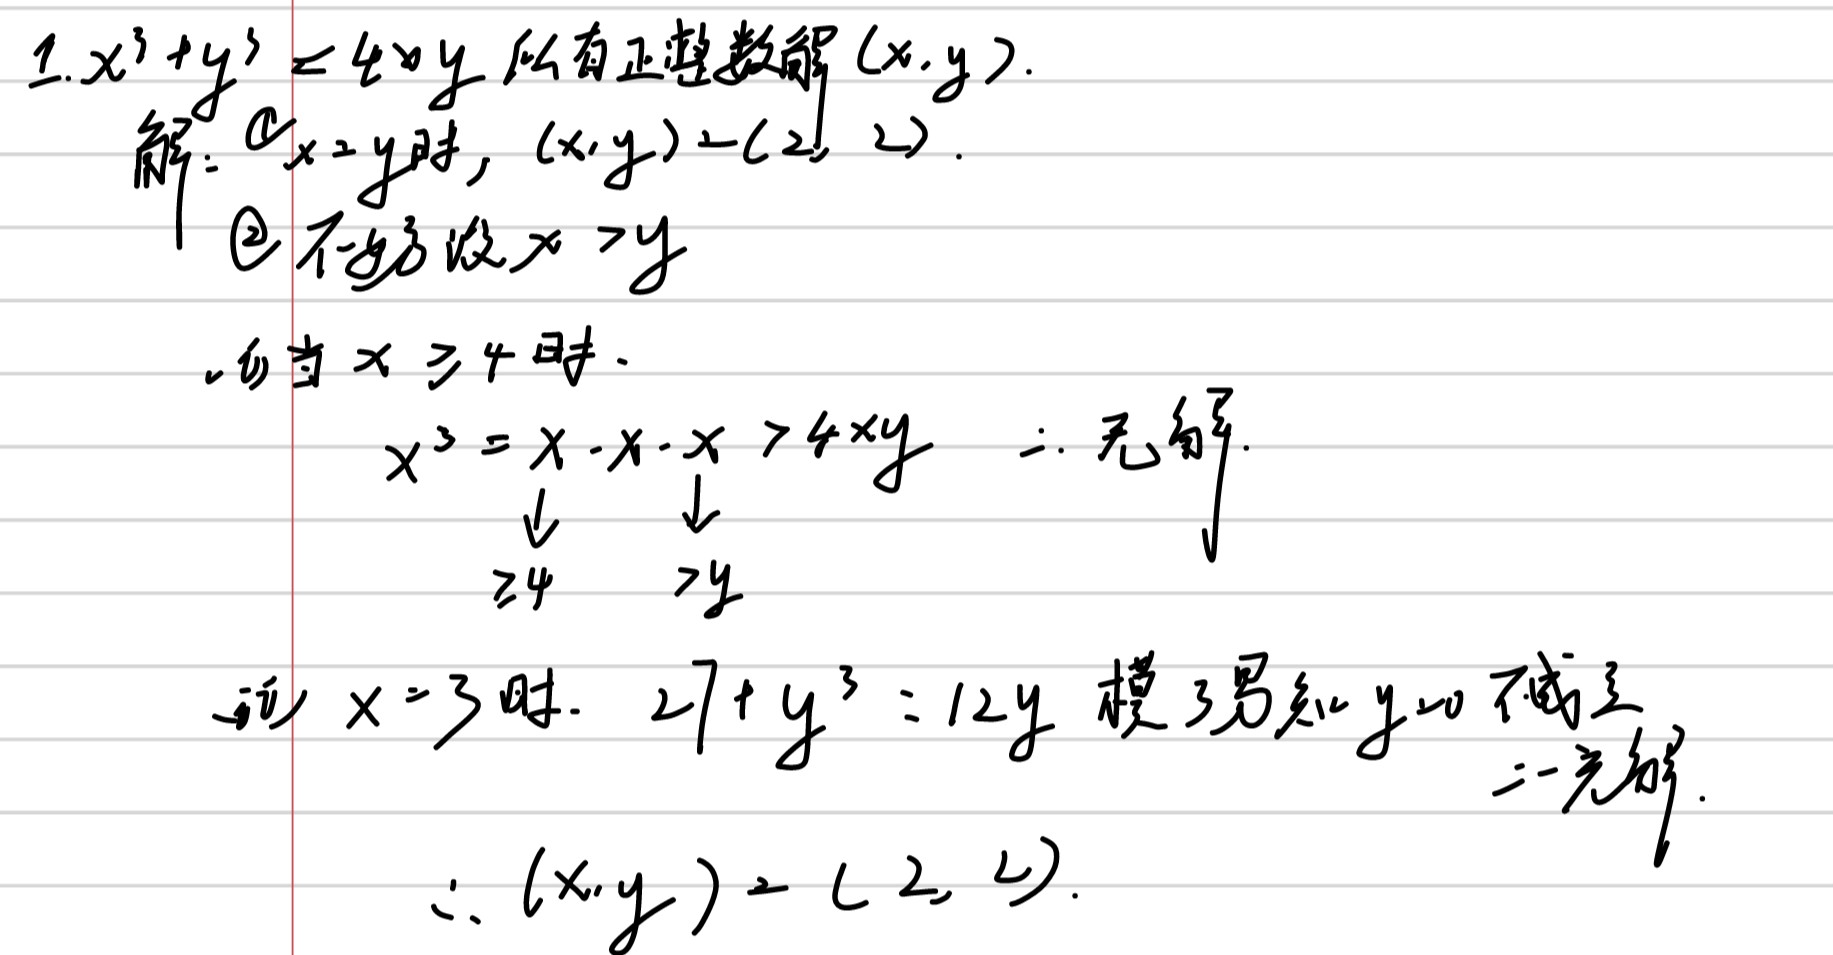 1. x³+y³=4xy 所有正整数解(x,y).
解: ① x=y时, (x,y)=(2,2).
② 不妨设 x>y
(i) 当 x≥4时.
x³=x·x·x>4xy ∴无解.
↓ ↓
≥4 >y
(ii) x=3时. 27+y³=12y 模3易知y=0 不成立
∴无解.
∴(x,y)=(2,2).